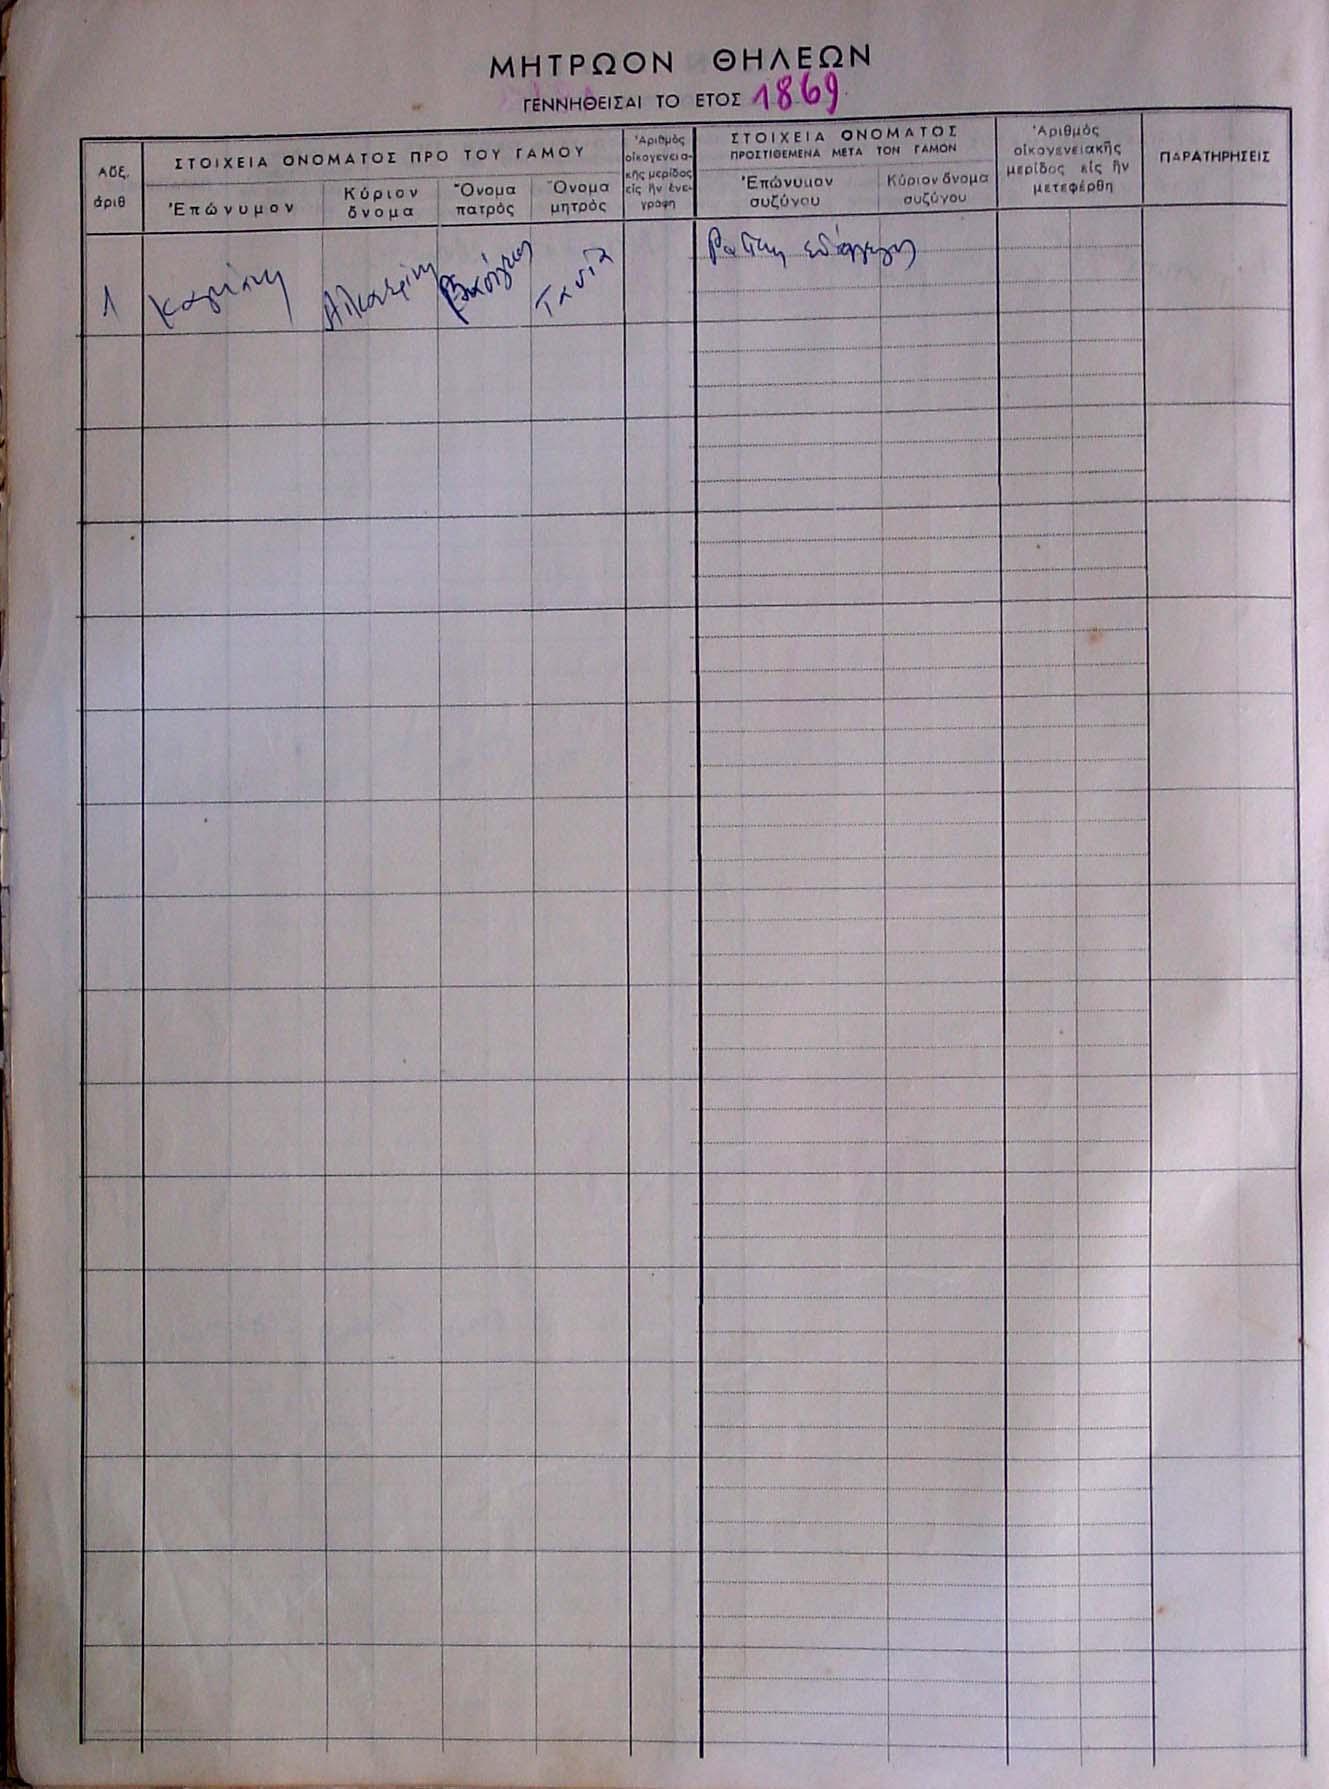 ΜΗΤΡΩΟΝ ΘΗΛΕΩΝ
ΓΕΝΝΗΘΕΙΣΑΙ ΤΟ ΕΤΟΣ 1869
Αὔξ.
ἀριθ
ΣΤΟΙΧΕΙΑ ΟΝΟΜΑΤΟΣ ΠΡΟ ΤΟΥ ΓΑΜΟΥ
Ἐπώνυμον
Κύριον
ὄνομα
Ὄνομα
πατρὸς
Ὄνομα
μητρὸς
Ἀριθμὸς
οἰκογενεια-
κῆς μερίδος
εἰς ἣν ἐνε-
γράφη
ΣΤΟΙΧΕΙΑ ΟΝΟΜΑΤΟΣ
ΠΡΟΣΤΙΘΕΜΕΝΑ ΜΕΤΑ ΤΟΝ ΓΑΜΟΝ
Ἐπώνυμον
συζύγου
Κύριον ὄνομα
συζύγου
Ἀριθμὸς
οἰκογενειακῆς
μερίδος εἰς ἣν
μετεφέρθη
ΠΑΡΑΤΗΡΗΣΕΙΣ
1